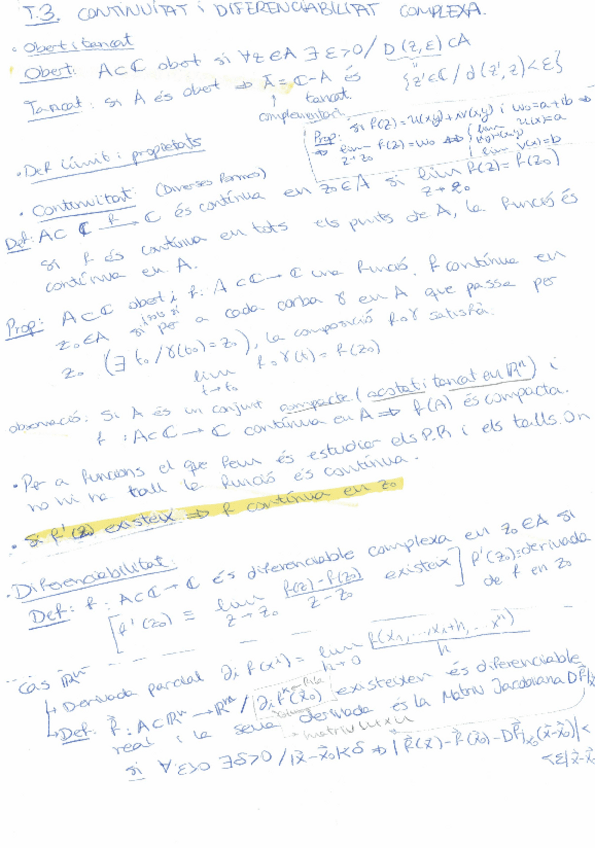 T.3. CONTINUÏTAT i DIFERENCIABILITAT COMPLEXA.
· Obert i tancat
Obert: A⊂ℂ obert si ∀z∈A ∃ε>0 / D(z,ε)⊂A
{z'∈ℂ / d(z',z)<ε}
Tancat: Si A és obert ⇒ Ā = ℂ-A és tancat.
complementari
Prop: Si f(z)=u(x,y)+iv(x,y) i w₀=a+ib ⇒
⇒ lim z→z₀ f(z)=w₀ ⇔ { lim u(x)=a
lim v(x)=b
· Def límit i propietats
· Continuïtat: (Diverses formes)
Def: A⊂ℂ →f ℂ és contínua en z₀∈A si lim z→z₀ f(z)=f(z₀)
Si f és contínua en tots els punts de A, la funció és
contínua en A.
Prop: A⊂ℂ obert i f: A⊂ℂ→ℂ una funció. f contínua en
z₀∈A si i només si per a cada corba γ en A que passe per
z₀ (∃ t₀ / γ(t₀)=z₀), la composició f∘γ satisfà:
lim t→t₀ f∘γ(t)=f(z₀)
observació: Si A és un conjunt compacte (acotat i tancat en ℝⁿ) i
f: A⊂ℂ→ℂ contínua en A ⇒ f(A) és compacta.
· Per a funcions el que fem és estudiar els P.R i els talls. On
no hi ha tall la funció és contínua.
· Si f'(z₀) existeix ⇒ f contínua en z₀
· Diferenciabilitat:
Def: f: A⊂ℂ→ℂ és diferenciable complexa en z₀∈A si
[f'(z₀) ≡ lim z→z₀ f(z)-f(z₀) / z-z₀ existeix] f'(z₀)=derivada
de f en z₀
Cas ℝⁿ
↳ Derivada parcial ∂ᵢf(xⁱ) = lim h→0 f(x₁,...,xᵢ+h,...xⁿ) / h
↳ Def. f⃗: A⊂ℝⁿ→ℝᵐ / ∂ᵢfᵏ(x⃗₀) existeixen és diferenciable
real i la seua derivada és la Matriu Jacobiana Df⃗|x₀
matriu mxn
si ∀ε>0 ∃δ>0 / |x⃗-x⃗₀|<δ ⇒ |f⃗(x⃗)-f⃗(x⃗₀)-Df⃗|x₀(x⃗-x⃗₀)|<
<ε|x⃗-x⃗₀